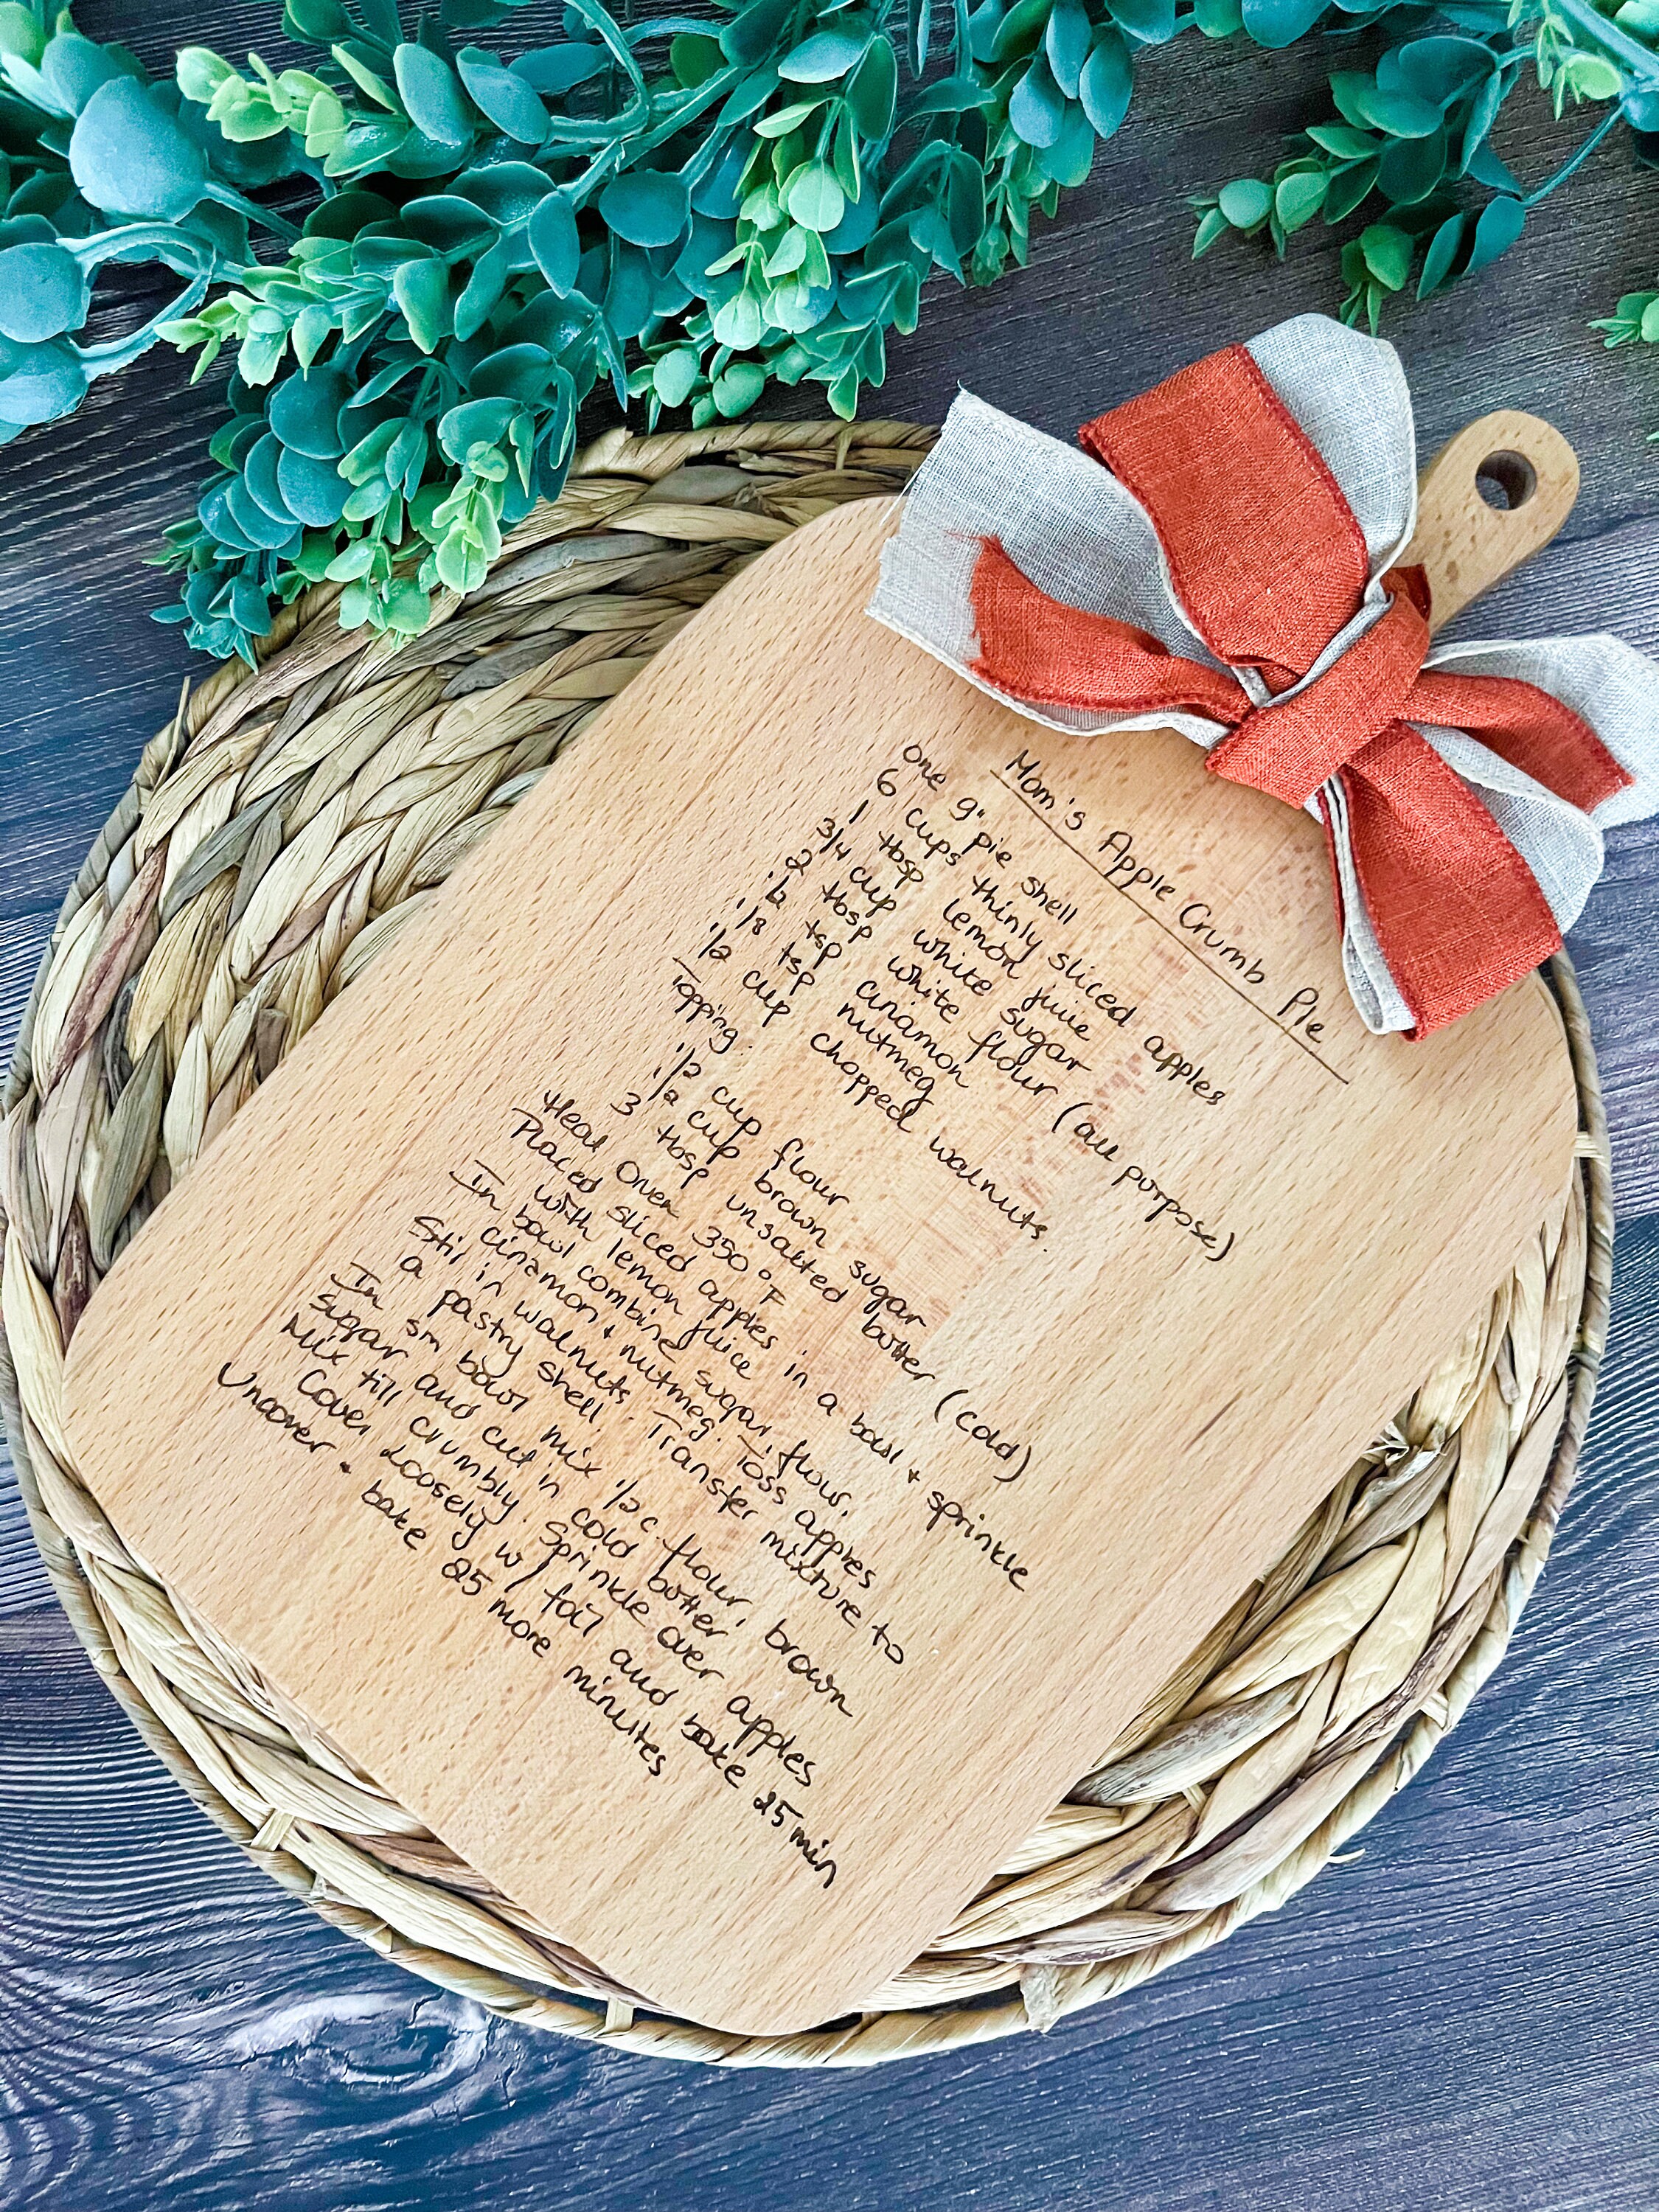 Mom's Apple Crumb Pie
one 9" pie shell
6 cups thinly sliced apples
1 tbsp lemon juice
3/4 cup white sugar
2 tbsp white flour (all purpose)
1/2 tsp cinamon
1/8 tsp nutmeg
1/2 cup chopped walnuts.
Topping:
1/2 cup flour
1/2 cup brown sugar
3 tbsp unsalted butter (cold)
Heat Oven 350°F
Placed sliced apples in a bowl + sprinkle
with lemon juice
In bowl combine sugar, flour,
cinamon + nutmeg. Toss apples
Stir in walnuts. Transfer mixture to
a pastry shell.
In sm bowl mix 1/2 c. flour, brown
sugar and cut in cold butter
Mix till crumbly. Sprinkle over apples
Cover Loosely w/ foil and bake 25 min
Uncover + bake 25 more minutes